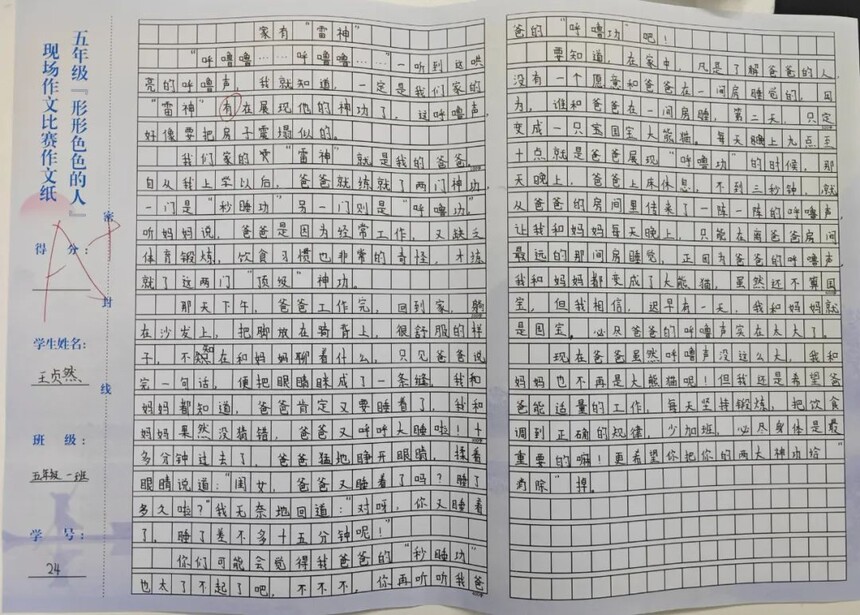 五年级『形形色色的人』
现场作文比赛作文纸
得 分：
学生姓名：
王贞然
班 级：
五年级 一班
学 号：
24
密
封
线
家有“雷神”
“呼噜噜……呼噜噜……”一听到这哄
亮的呼噜声，我就知道，一定是我们家的
“雷神”有在展现他的神功了，这呼噜声，
好像要把房子震塌似的。
我们家的“雷神”就是我的爸爸，
自从我上学以后，爸爸就练就了两门神功，
一门是“秒睡功”另一门则是“呼噜功”。
听妈妈说，爸爸是因为经常工作，又缺乏
体育锻炼，饮食习惯也非常的奇怪，才练
就了这两门“顶级”神功。
那天下午，爸爸工作完，回到家，躺
在沙发上，把脚放在椅背上，很舒服的样
子，不知在和妈妈聊着什么，只见爸爸说
完一句话，便把眼睛眯成了一条缝，我和
妈妈都知道，爸爸肯定又要睡着了，我和
妈妈果然没猜错，爸爸又呼呼大睡啦！十
多分钟过去了，爸爸猛地睁开眼睛，揉着
眼睛说道：“闺女，爸爸又睡着了吗？睡了
多久啦？”我无奈地回道：“对呀，你又睡着
了，睡了差不多十五分钟呢！”
你们可能会觉得我爸爸的“秒睡功”
也太了不起了吧，不不不，你再听听我爸
爸的“呼噜功”吧！
要知道，在家中，凡是了解爸爸的人，
没有一个愿意和爸爸在一间房睡觉的，因
为，谁和爸爸在一间房睡，第二天，只定
变成一只宝国宝大熊猫。每天晚上九点至
十点就是爸爸展现“呼噜功”的时候，那
天晚上，爸爸上床休息，不到三秒钟，就
从爸爸的房间里传来了一阵一阵的呼噜声，
让我和妈妈每天晚上，只能在离爸爸房间
最远的那间房睡觉，正因为爸爸的呼噜声，
我和妈妈都变成了大熊猫，虽然还不算国
宝，但我相信，迟早有一天，我和妈妈就
是国宝。必尽爸爸的呼噜声实在太大了。
现在爸爸虽然呼噜声没这么大，我和
妈妈也不再是大熊猫呢！但我还是希望爸
爸能适量的工作，每天坚持锻炼，把饮食
调到正确的规律，少加班，必尽身体是最
重要的嘛！更希望你把你的两大神功给“
消除”掉。